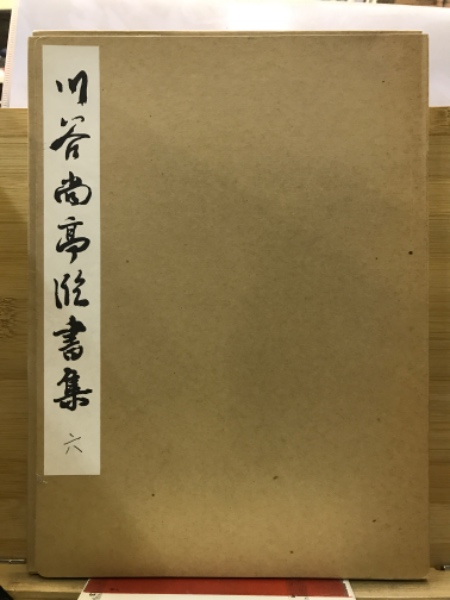 川谷尚亭臨書集
六